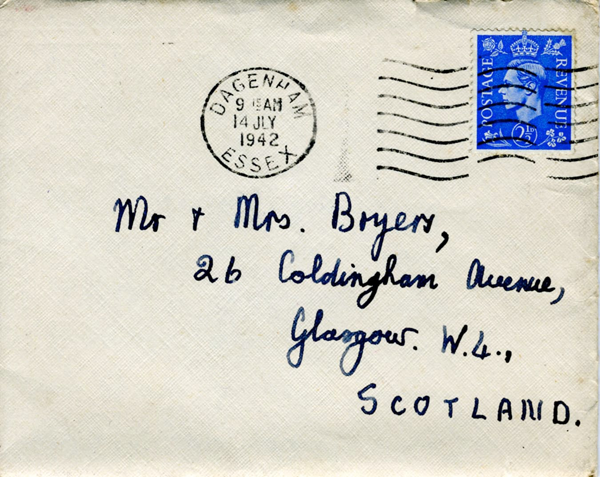 DAGENHAM
9 15 AM
14 JLY
1942
ESSEX
POSTAGE
REVENUE
2½D
Mr + Mrs. Bryers,
26 Coldingham Avenue,
Glasgow. W.4.,
SCOTLAND.